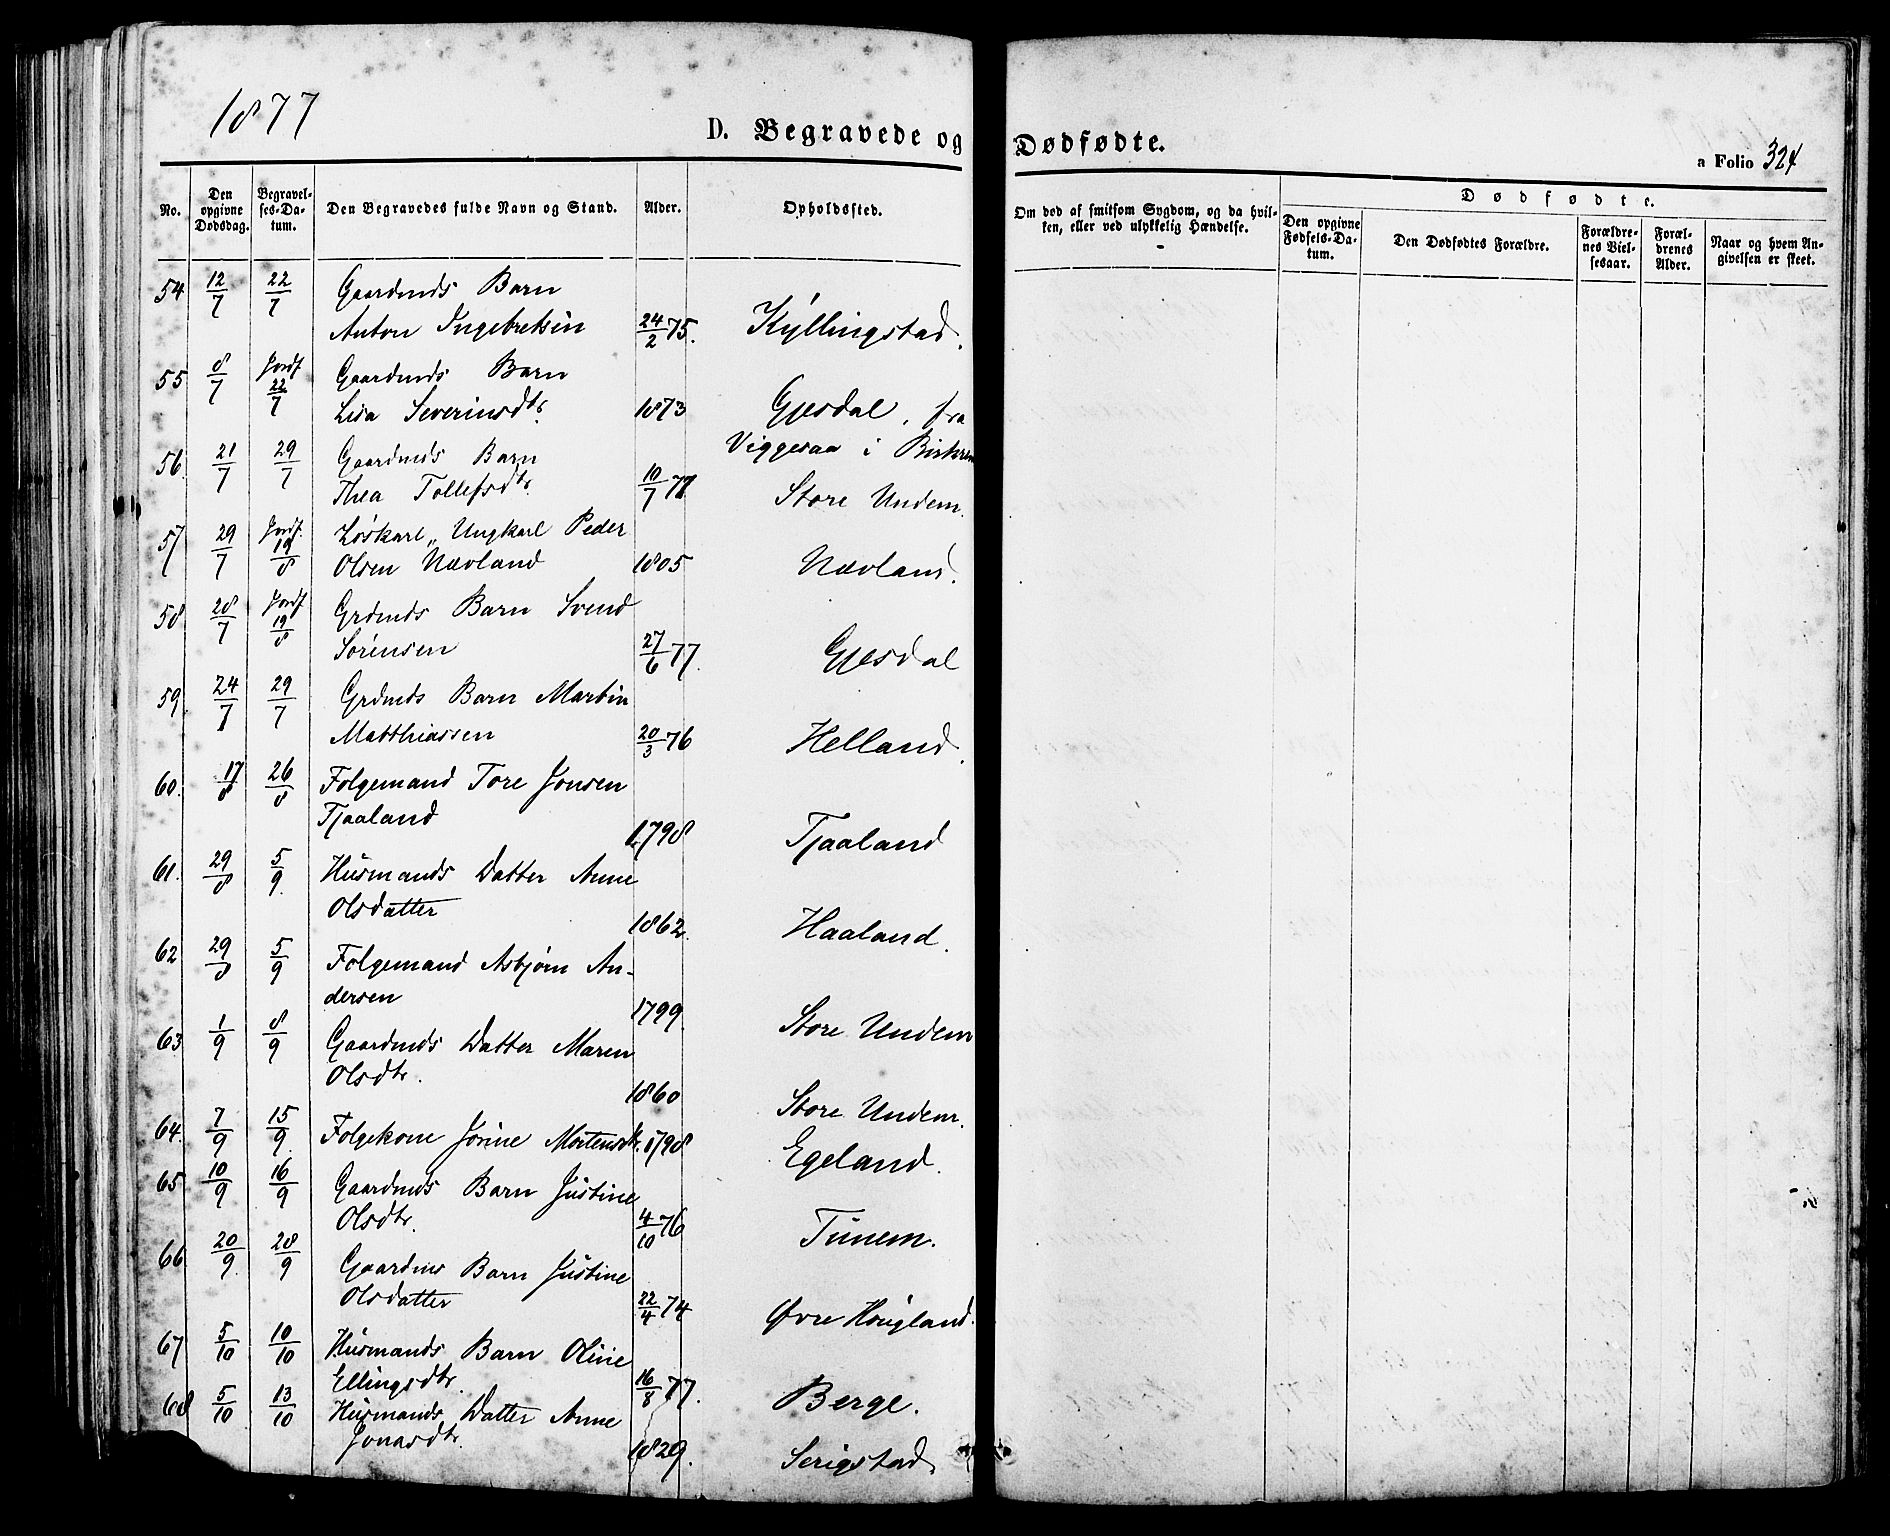 1877
D. Begravede og Dødfødte.
a Folio 324
No.
Den opgivne Dødsdag.
Begravelses-Datum.
Den Begravedes fulde Navn og Stand.
Alder.
Opholdssted.
Om død af smitsom Sygdom, og da hvilken, eller ved ulykkelig Hændelse.
Dødfødte.
Den opgivne Fødsels-Datum.
Den Dødfødtes Forældre.
Forældrenes Vielsesaar.
Forældrenes Alder.
Naar og hvem Angivelsen er skeet.
54 12/7 22/7 Gaardmds Barn
Anton Ingebretsen 24/2 75. Kyllingstad.
55 8/7 Jordf. 22/7 Gaardmds Barn
Lisa Severinsdtr. 1873 Gjesdal, fra
Viggesaa i Birkrem
56. 21/7 29/7 Gaardmds Barn
Thea Tollefsdtr. 10/7 77 Store Undem.
57 29/7 Jordf. 19/8 Løskarl, Ungkarl Peder
Olsen Nævland 1805 Nævland.
58 28/7 Jordf 19/8 Grdmds Barn Svend
Sørensen 27/6 77. Gjesdal
59. 24/7 29/7 Grdmds Barn Martin
Matthiassen 20/3 76 Helland.
60. 17/8 26/8 Folgemand Tore Jonsen
Tjaaland 1798 Tjaaland
61. 29/8 5/9. Husmands Datter Anne
Olsdatter 1862. Haaland.
62 29/8 5/9 Folgemand Asbjørn An-
dersen 1799 Store Undem
63 1/9 8/9 Gaardmds Datter Maren
Olsdtr. 1860 Store Undem.
64. 7/9 15/9. Folgekone Jorine Mortensdtr. 1798 Egeland.
65 10/9 16/9 Gaardmds Barn Justine
Olsdtr. 4/10 76 Tunem.
66 20/9. 28/9 Gaardms Barn Justine
Olsdatter 22/4 74 Øvre Haugland.
67 5/10 10/10 Husmands Barn Oline
Ellingsdtr. 16/8 77. Berge.
68 5/10 13/10 Husmands Datter Anne
Jonasdtr. 1829. Serigstad